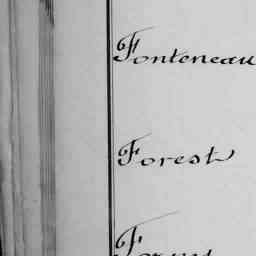 Fonteneau
Forest